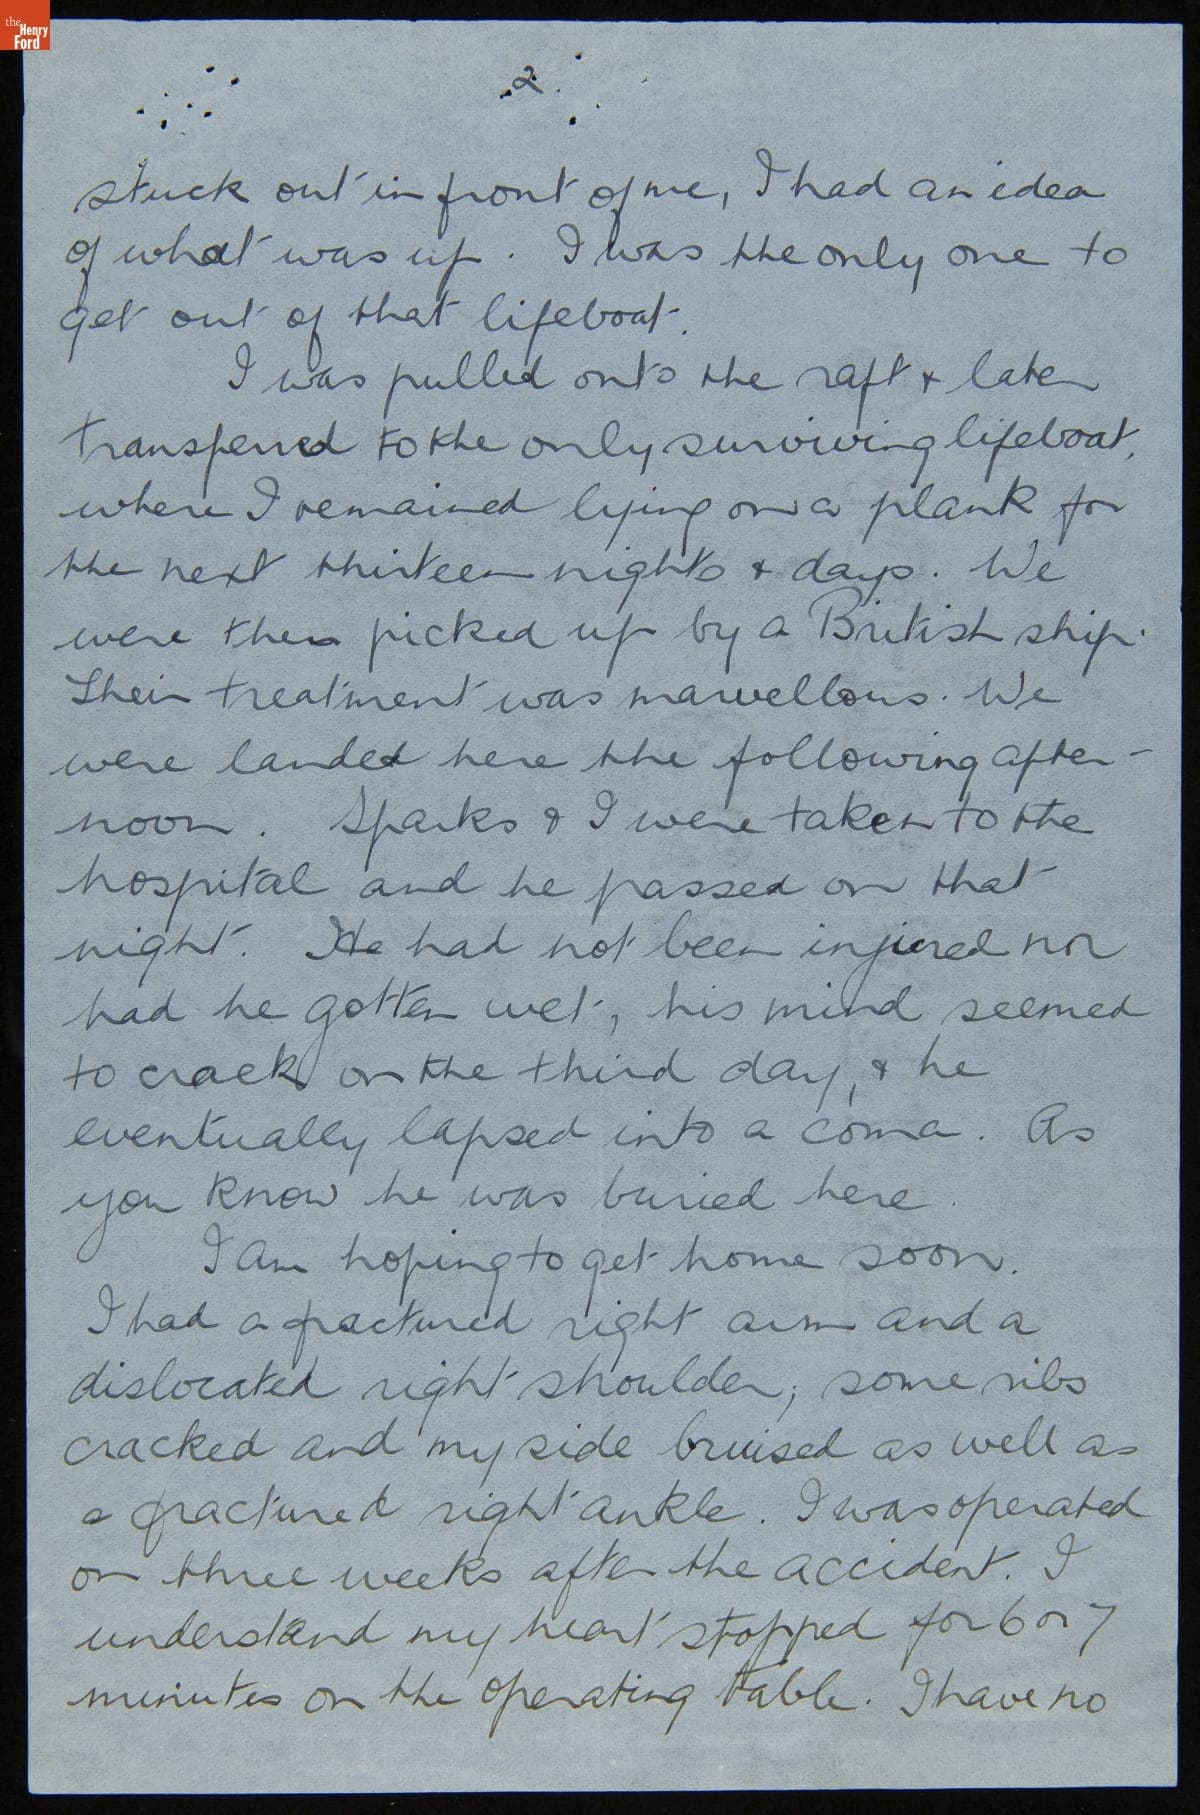 the
Henry
Ford
2
stuck out in front of me, I had an idea
of what was up. I was the only one to
get out of that lifeboat.
I was pulled onto the raft & later
transferred to the only surviving lifeboat,
where I remained lying on a plank for
the next thirteen nights & days. We
were then picked up by a British ship.
Their treatment was marvellous. We
were landed here the following after-
noon. Sparks & I were taken to the
hospital and he passed on that
night. He had not been injured nor
had he gotten wet, his mind seemed
to crack on the third day, & he
eventually lapsed into a coma. As
you know he was buried here.
I am hoping to get home soon.
I had a fractured right arm and a
dislocated right shoulder, some ribs
cracked and my side bruised as well as
a fractured right ankle. I was operated
on three weeks after the accident. I
understand my heart stopped for 6 or 7
minutes on the operating table. I have no